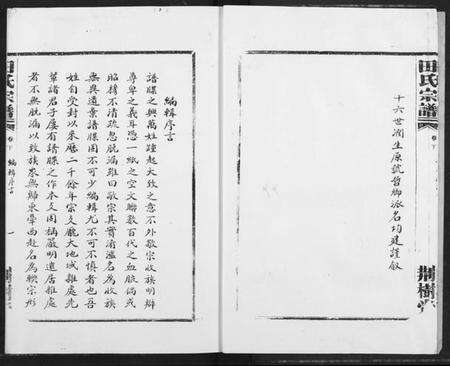 田氏宗譜
卷下
荆樹堂
十六世潤生原號哲卿派名均建謹叙
編輯序言
譜牒之興萬姓踵起大致之意不外敬宗收族明辨
尊卑之義耳憑一紙之文聯數百代之血脈倘或
昭穆不清忽脫漏雖曰敬宗其實淆濫名為收族
無異遺棄譜牒固不可少編輯尤不可不慎者也吾
姓自受封以來歷二千餘年宗支龐大地域雖處先
輩諸君子屢有譜牒之作本支因稱嚴明遺居雜處
者不無脫漏以致族眾無歸東學西赴名為聯宗形
田氏宗譜
卷下
編輯序言
一